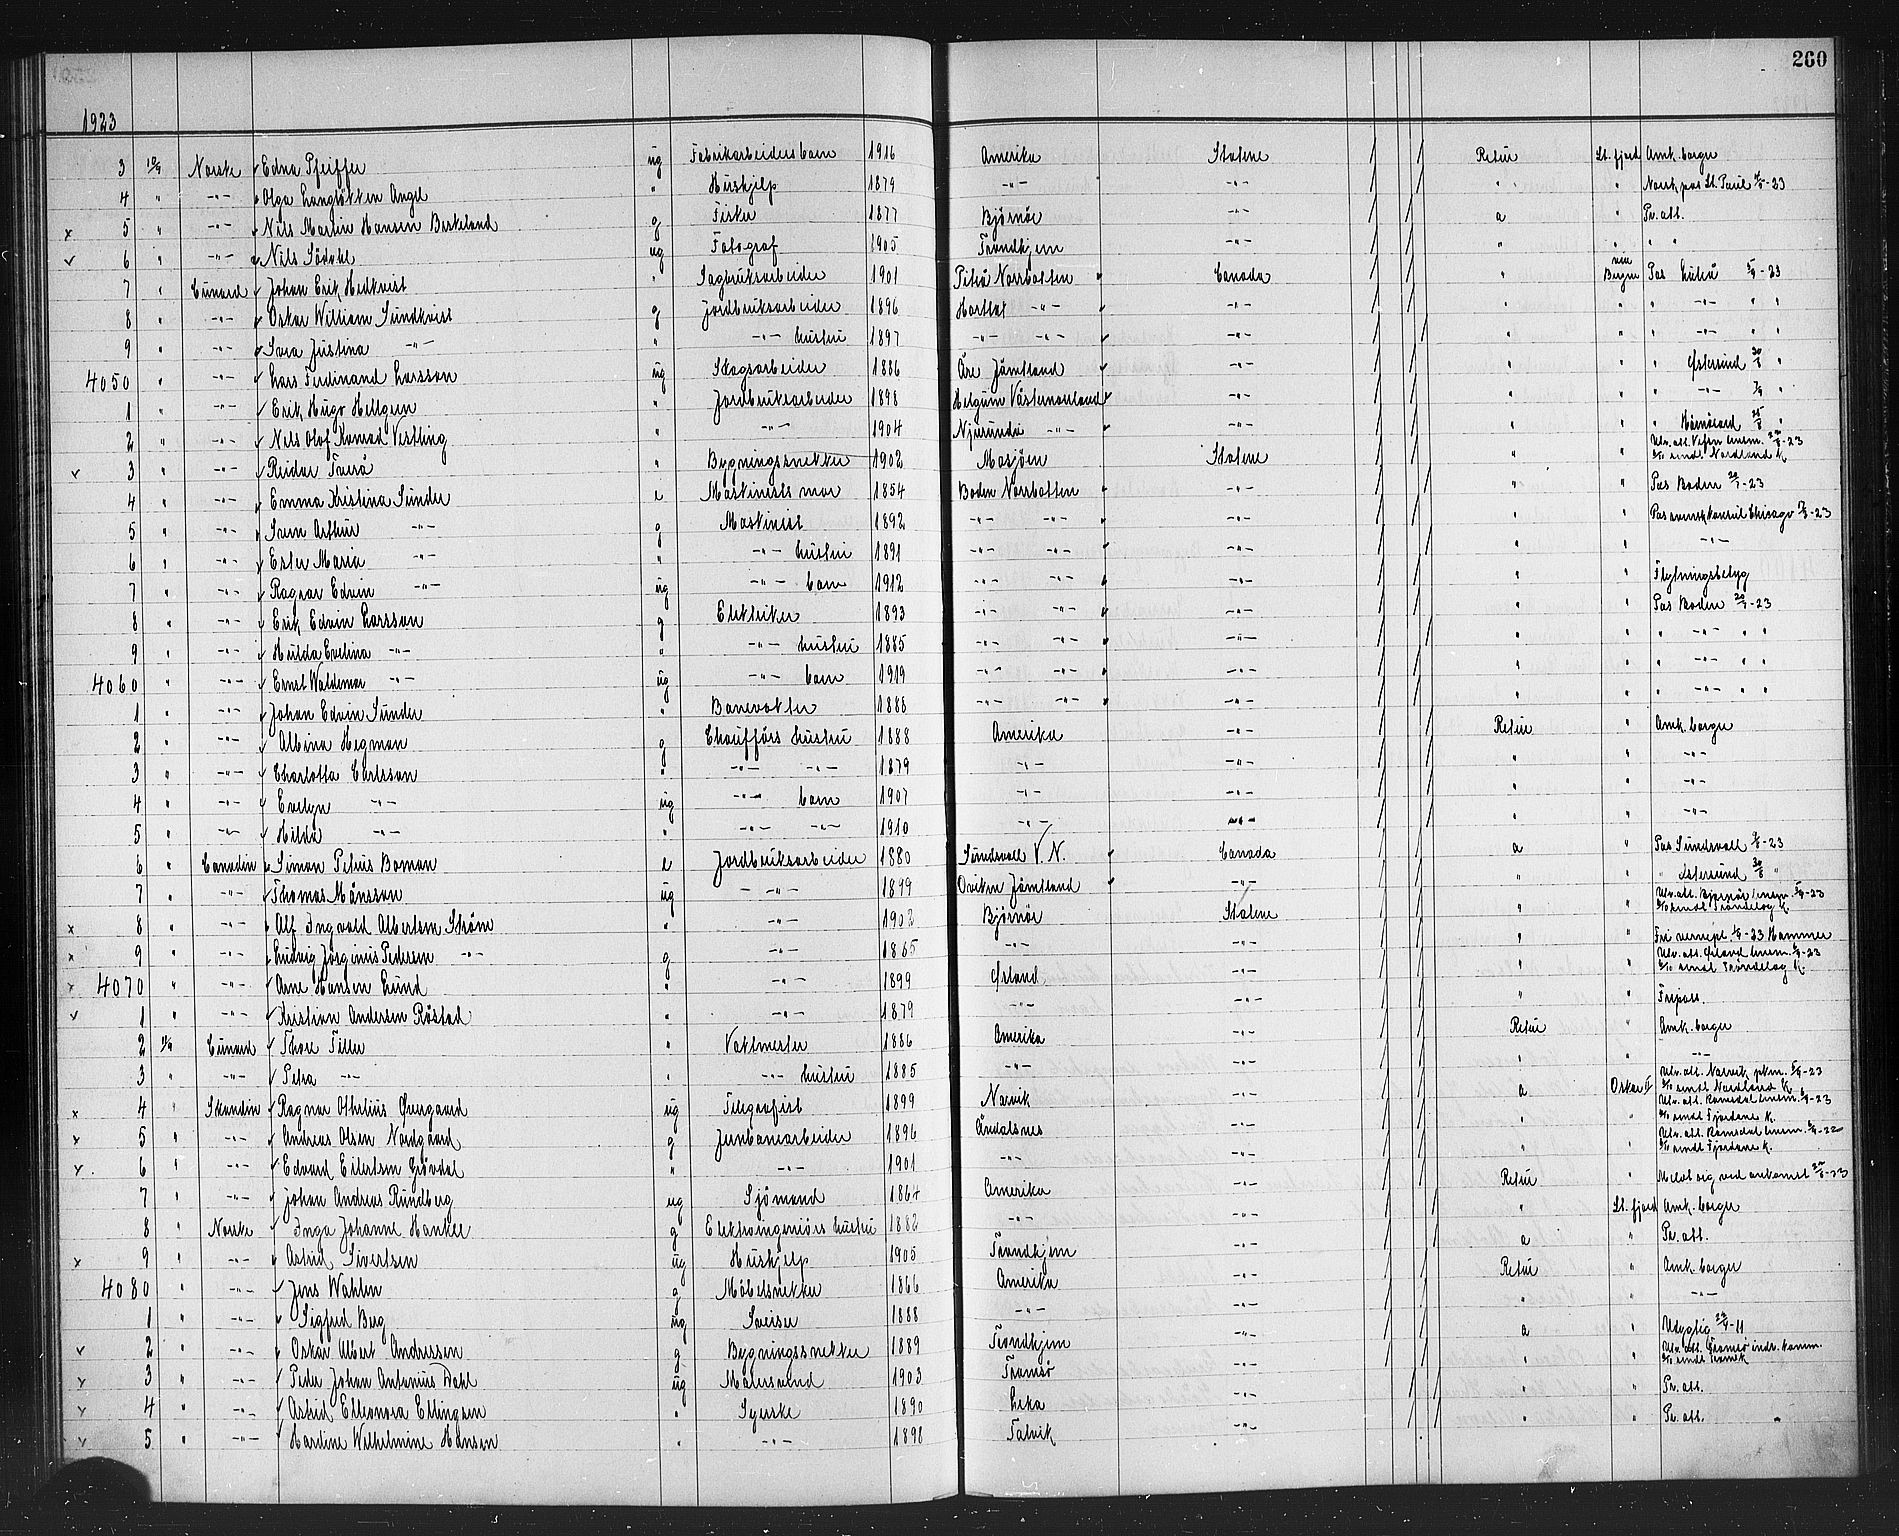 260
1923
3 10/9 Norske Edna Pfeiffer ug Fabrikarbeiders barn 1916 Amerika Statene Retur St. fjord Amk. borger
4 " -"- Olga Langløkken Angel " Hushjelp 1879 -"- -"- " " Norsk pas St. Paul -23
x 5 " -"- Nils Martin Hansen Birkeland g Fisker 1877 Bjørnør -"- a " Pr. att.
v 6 " -"- Nils Södahl ug Fotograf 1905 Trondhjem -"- " " " "
7 " Cunard Johan Erik Hedkvist " Sagbruksarbeider 1901 Piteå Norrbotten Canada " via Bergen Pas Luleå 5/9-23
8 " -"- Oskar William Sundkvist g Jordbruksarbeider 1896 Hortlax -"- -"- " " " -"- " "
9 " -"- Svea Justina -"- " -"- hustru 1897 -"- -"- -"- " " " -"- " "
4050 " -"- Lars Ferdinand Larsson ug Skogsarbeider 1886 Åre Jämtland -"- " " " Østersund 30/8 "
1 " -"- Erik Hugo Hellgren " Jordbruksarbeider 1898 Helgum Västernorrland -"- " " " -"- 7/9 "
2 " -"- Nils Olof Konrad Vestling " -"- 1904 Njurunda -"- -"- " " " Härnösand 28/8 "
v 3 " -"- Reidar Tverå " Bygningssnekker 1902 Mosjøen Statene " " Utv. att. Vefsn lensm. 22/8-23 6/10 sendt Nordland K.
4 " -"- Emma Kristina Sunder e Maskinists mor 1854 Boden Norrbotten -"- " " Pas Boden 20/7-23
5 " -"- Sven Arthur -"- g Maskinist 1892 -"- -"- -"- " " Pas svensk konsul Chicago -23
6 " -"- Ester Maria -"- " -"- hustru 1891 -"- -"- -"- " " -"-
7 " -"- Ragnar Edvin -"- ug -"- barn 1912 -"- -"- -"- " " Flytningsbetyg
8 " -"- Erik Edvin Larsson g Elektriker 1893 -"- -"- -"- " " Pas Boden 20/7-23
9 " -"- Hulda Evelina -"- " -"- hustru 1885 -"- -"- -"- " " " -"- " "
4060 " -"- Ernst Waldemar -"- ug -"- barn 1919 -"- -"- -"- " " " -"- " "
1 " -"- Johan Edvin Sunder " Banevakter 1888 -"- -"- -"- " " " -"- " "
2 " -"- Albina Hegman g Chaufførs hustru 1888 Amerika -"- Retur " Amk. borger
3 " -"- Charlotta Carlsson " -"- -"- 1879 -"- -"- " " -"-
4 " -"- Evelyn -"- ug -"- barn 1907 -"- -"- " " -"-
5 " -"- Hilda -"- " -"- -"- 1910 -"- -"- " " -"-
6 " Canadin Simon Petrus Boman e Jordbruksarbeider 1880 Sundsvall V.N. Canada a " Pas Sundsvall -23
7 " -"- Thomas Månsson ug -"- 1899 Oviken Jämtland -"- " " " Østersund 30/8 "
x 8 " -"- Alf Ingvald Albertsen Strøm " -"- 1902 Bjørnør Statene " " Utv. att. Bjørnør lensm. 5/9-23 6/10 sendt Trøndelag K.
x 9 " -"- Ludvig Jørginus Pedersen -"- g -"- 1865 -"- -"- " " Fri vernepl. 1/9-23 Hammer
x 4070 " -"- Arne Hansen Lund " -"- 1899 Ørland -"- " " Utv. att. Ørland lensm. -23 6/10 sendt Trøndelag K.
v 1 " -"- Kristian Andersen Röstad " -"- 1879 -"- -"- " " Fripass.
2 11/9 Cunard Thore Tiller " Vaktmester 1886 Amerika -"- Retur " Amk. borger
3 " -"- Petra -"- " -"- hustru 1885 -"- -"- " " -"-
x 4 " Skandin Ragnar Othelius Overgaard ug Telegrafist 1899 Narvik -"- a Oskar II Utv. att. Narvik pkm. -23 6/10 sendt Nordland K.
x 5 " -"- Andreas Olsen Nordgaard g Jernbanearbeider 1896 Åndalsnes -"- " " Utv. att. Romsdal lensm. -23 6/10 sendt Fjordane K.
v 6 " -"- Edvard Eilertsen Gjövdal " -"- 1901 -"- -"- " " Utv. att. Romsdal lensm. 6/10 sendt Fjordane K.
7 " -"- Johan Andreas Rundberg ug Sjömand 1864 Amerika -"- Retur " Meldt sig ved ankomst -23
8 " Norske Inga Johanne Hanklee g Elektroingeniørs hustru 1882 -"- -"- " St. fjord Amk. borger
x 9 " -"- Astrid Sivertsen ug Hushjelp 1905 Trondhjem -"- a " Pr. att.
4080 " -"- Jens Wahlen g Möbelsnekker 1866 Amerika -"- Retur " Amk. borger
1 " -"- Sigfred Berg ug Sveiser 1888 -"- -"- " " -"-
v 2 " -"- Oskar Albert Andressen g Bygningssnekker 1889 Trondhjem -"- a " Udygtig -11
v 3 " -"- Peder Johan Antonius Dahl ug Malersvend 1903 Tromsö -"- " " Utv. att. Tromsö indr. komm. 6/10 sendt Troms K
v 4 " -"- Astrid Elleonora Ellingsen " Syerske 1890 Leka -"- " " Pr. att.
v 5 " -"- Hartine Wilhelmine Hansen " -"- 1898 Talvik -"- " " Pr. att.